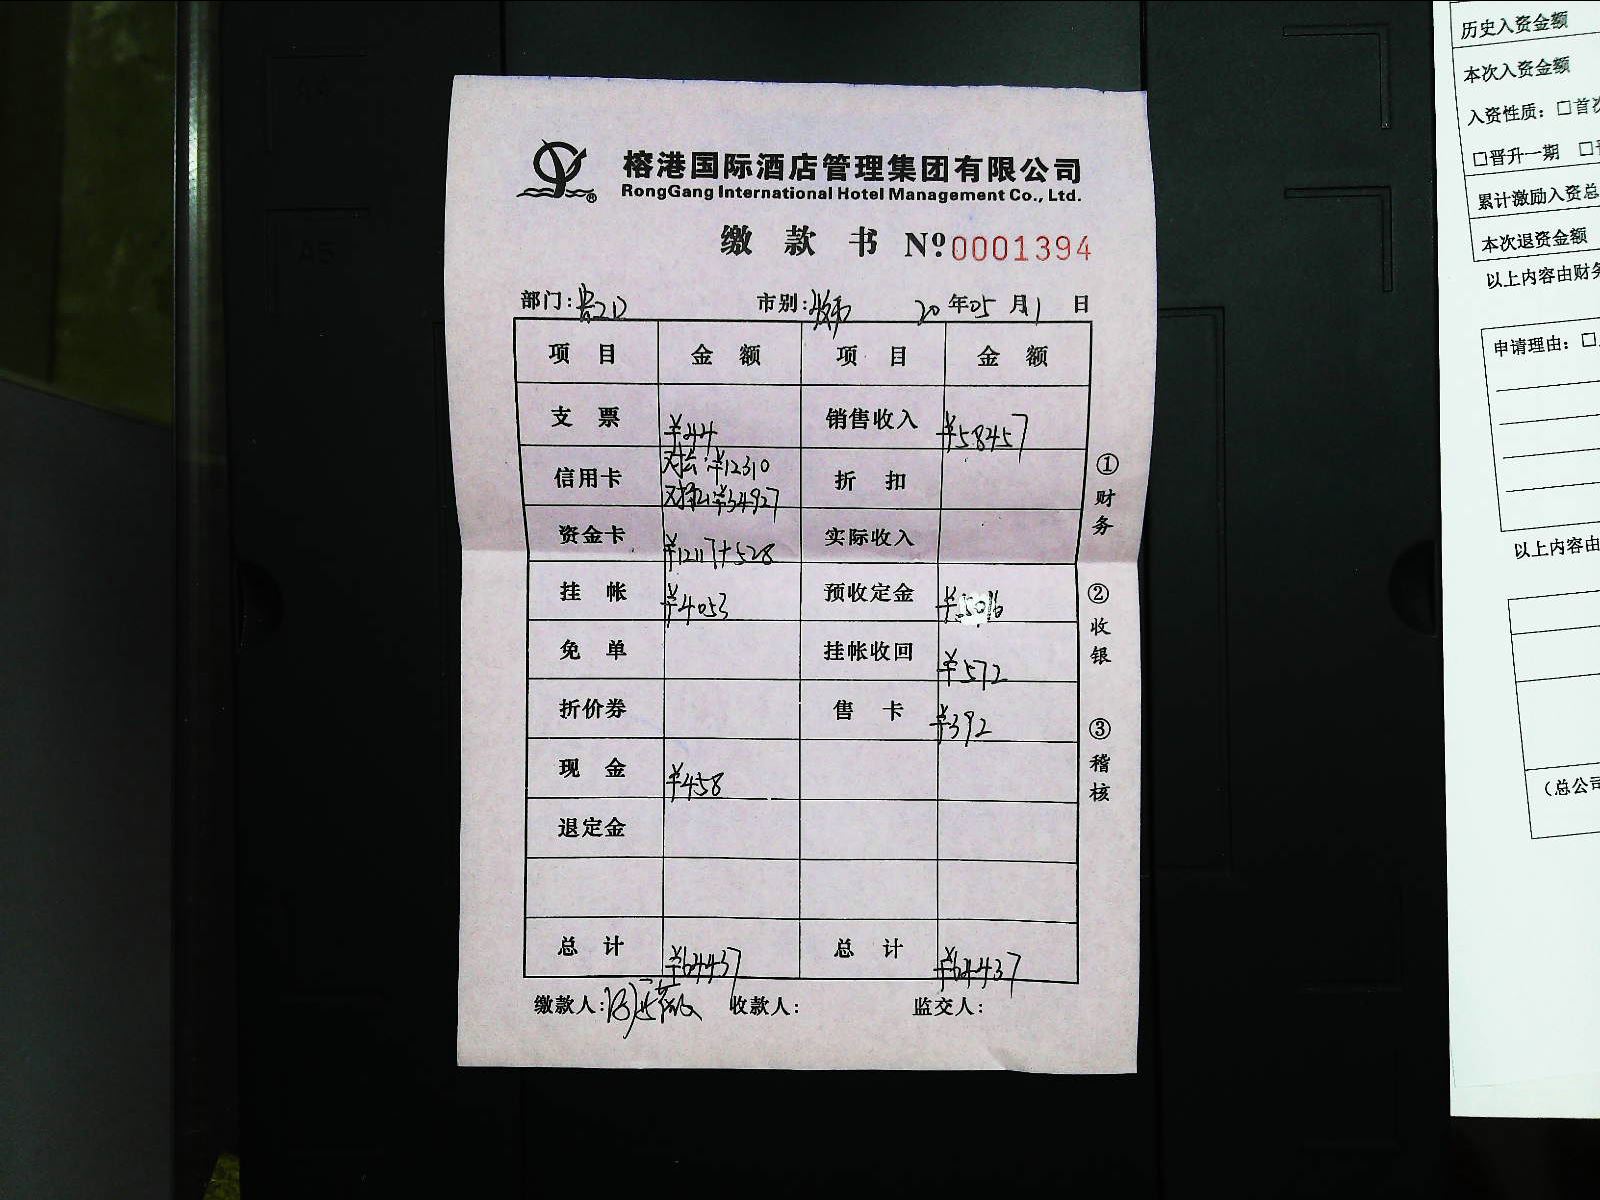 榕港国际酒店管理集团有限公司
RongGang International Hotel Management Co., Ltd.
缴 款 书 Nº 0001394
部门: 市别: 20 年 05 月 1 日
项 目 金 额 项 目 金 额
支 票 ¥244 销售收入 ¥58457
信用卡 ¥12310 折 扣
¥34927
资金卡 ¥12117+528 实际收入
挂 帐 ¥4053 预收定金 ¥5016
免 单 挂帐收回 ¥572
折价券 售 卡 ¥392
现 金 ¥458
退定金
总 计 ¥64437 总 计 ¥64437
缴款人: 收款人: 监交人:
①财务
②收银
③稽核
历史入资金额
本次入资金额
入资性质: □首次
□晋升一期 □
累计激励入资总
本次退资金额
以上内容由财务
申请理由: □
以上内容由
(总公司